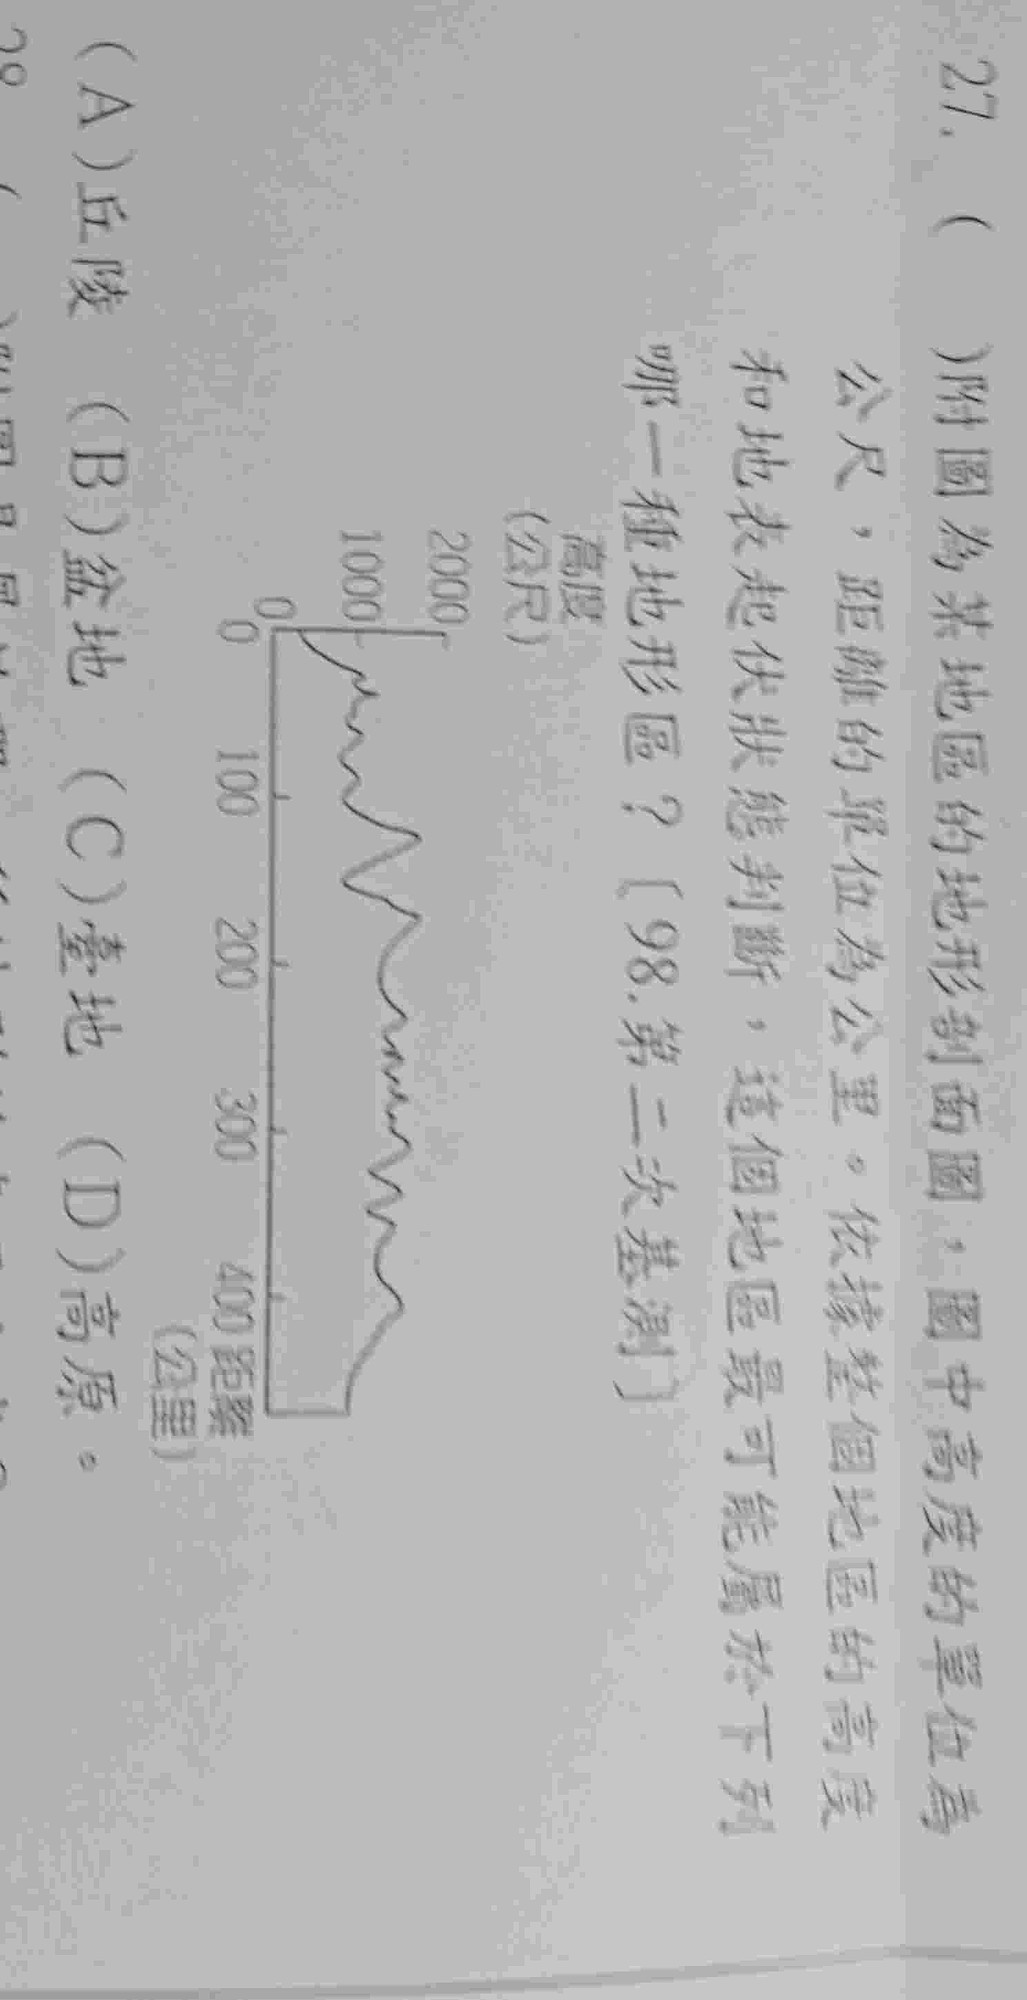 27. (　　)附圖為某地區的地形剖面圖，圖中高度的單位為
公尺，距離的單位為公里。依據整個地區的高度
和地表起伏狀態判斷，這個地區最可能屬於下列
哪一種地形區？〔98.第二次基測〕
高度
(公尺)
2000
1000
0
0 100 200 300 400 距離
(公里)
(A)丘陵 (B)盆地 (C)臺地 (D)高原。